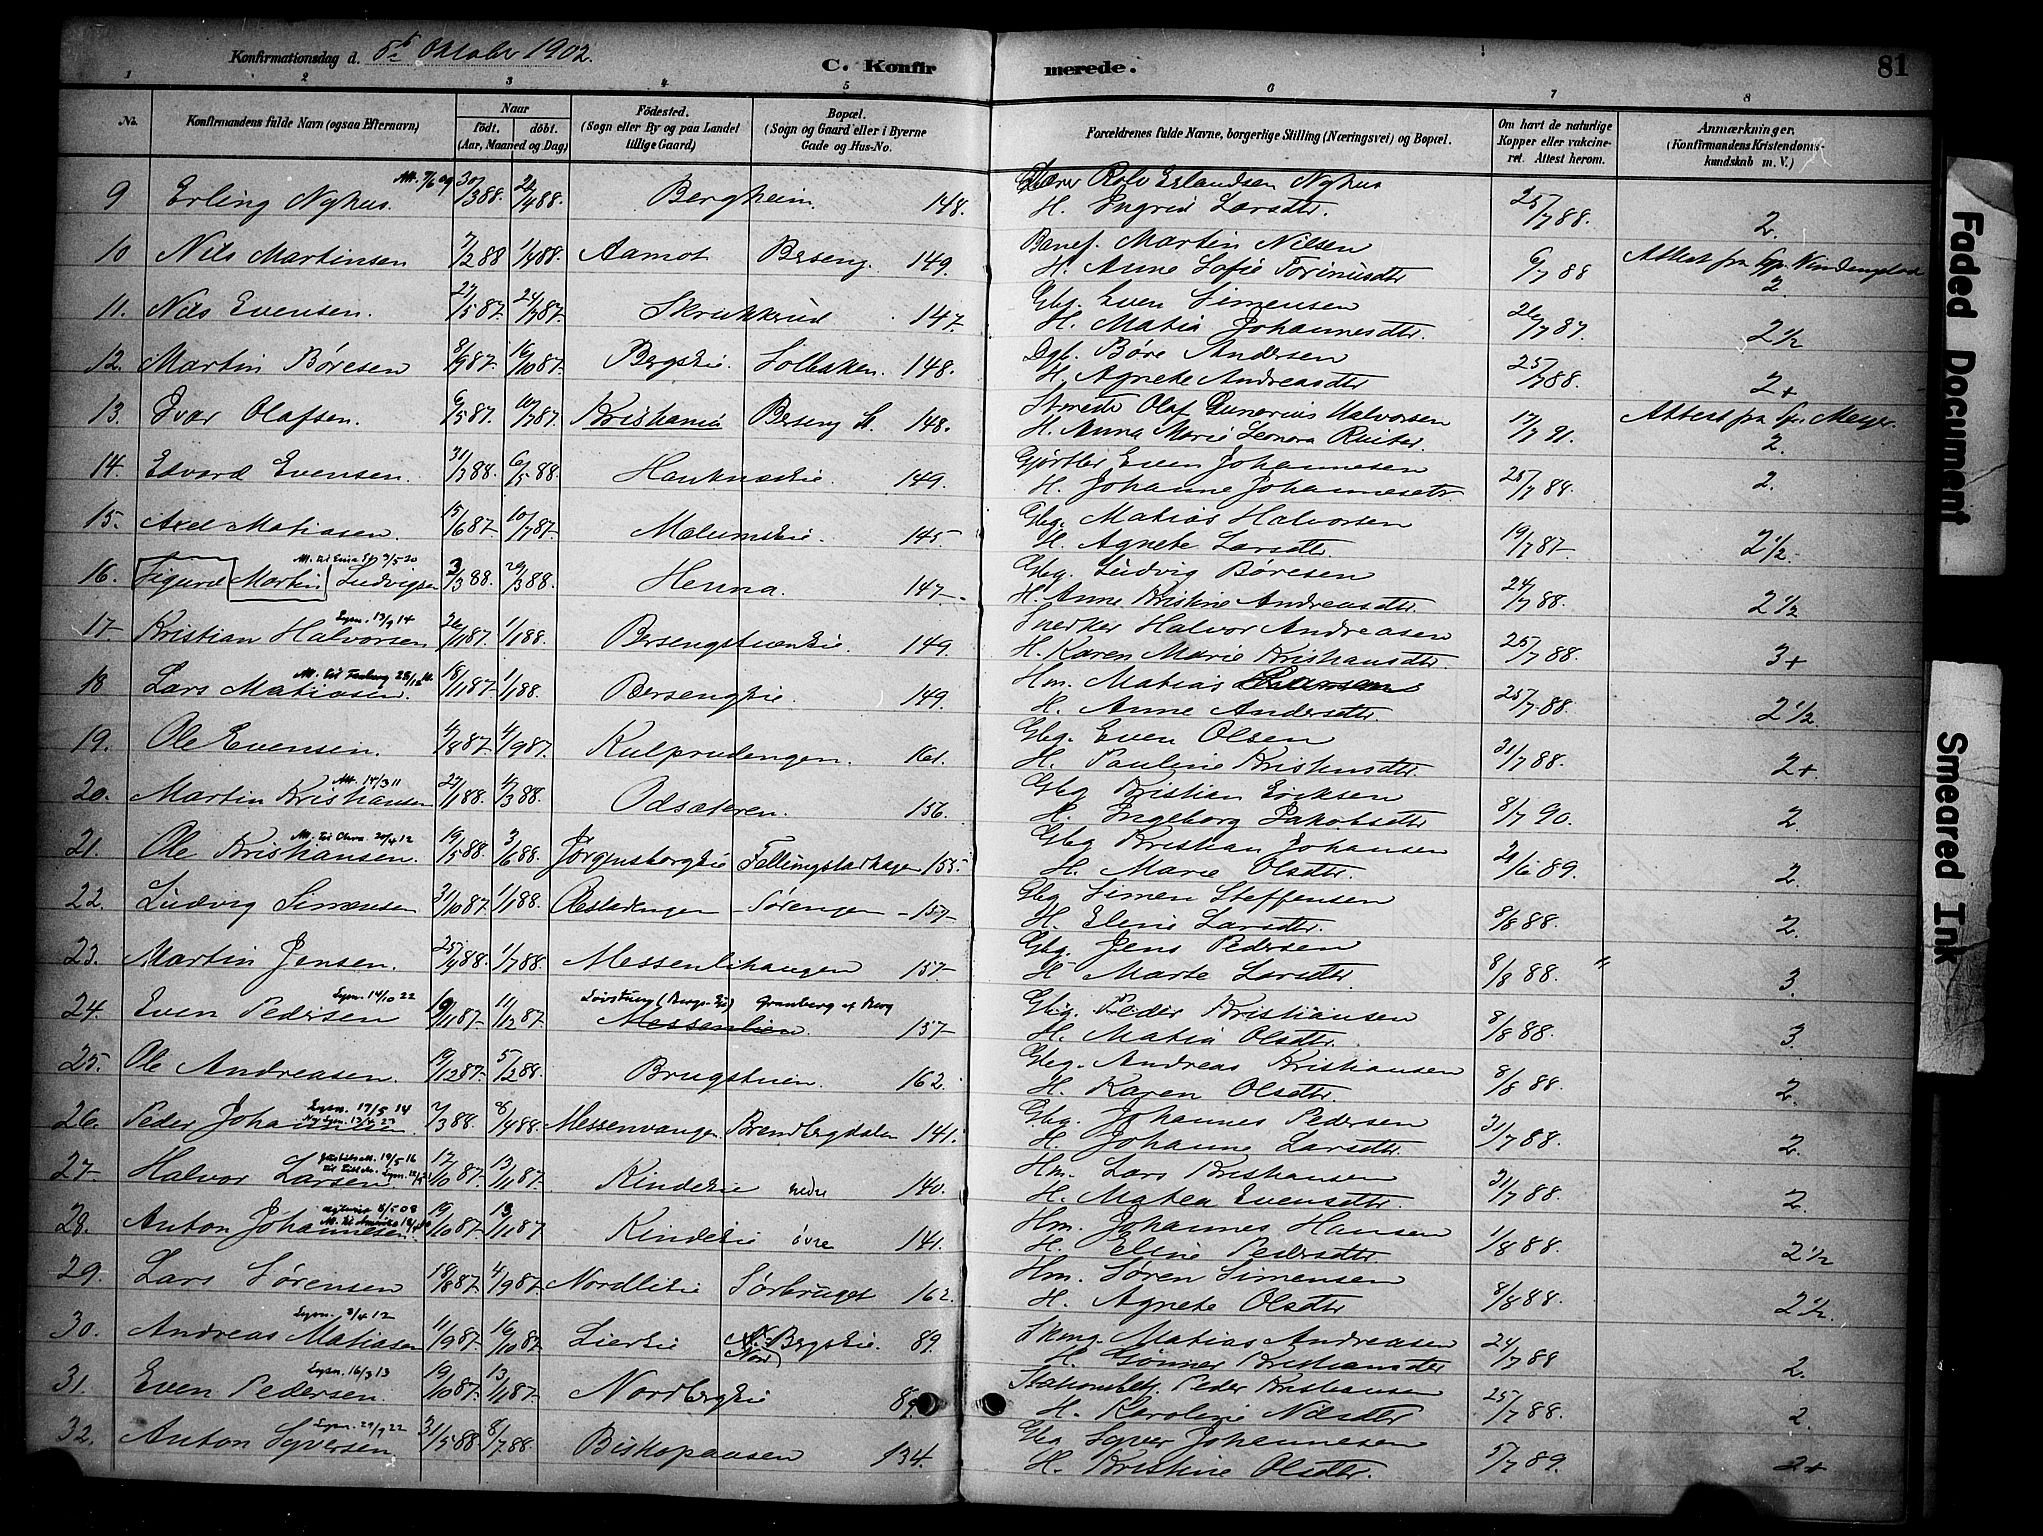 Konfirmationsdag d. 5te Oktober 1902.
C. Konfirmerede.
81
1 2 3 4 5 6 7 8
No. Konfirmandens fulde Navn (ogsaa Efternavn) Naar født. døbt. (Aar, Maaned og Dag) Fødested. (Sogn eller By og paa Landet tillige Gaard) Bopæl. (Sogn og Gaard eller i Byerne Gade og Hus-No. Forældrenes fulde Navne, borgerlige Stilling (Næringsvei) og Bopæl. Om havt de naturlige Kopper eller vakcineret. Attest herom. Anmærkninger. (Konfirmandens Kristendomskundskab m. V.)
9 Erling Nyhus. Att. 7/6 09 30/3 88. 22/4 88. Bergheim 148. Rolv Erlandsen Nyhus
H. Ingrid Larsdtr. 25/7 88. 2.
10 Nils Martinsen 7/2 88 1/4 88. Aamot Berseng. 149. Banef. Martin Nilsen
H. Anne Sofie Torinusdtr 6/7 88 Attest fra 2.
11. Nils Evensen. 27/5 87. 24/7 87. Skrukkrud 147- Gbg. Even Simensen
H. Matia Johannesdtr. 26/7 87. 2½
12. Martin Børesen 8/9 87. 16/10 87. Bergseie. Solbakken. 148. Dgf. Børe Andersen
H. Agnete Andreasdtr 25/7 88. 2+
13. Ivar Olafsen. 6/5 87. 10/7 87. Kristiania Berseng St. 148. Smed Olaf Gunerius Halvorsen
H. Anna Marie Leonora Reuter. 17/7 91. Attest fra Spr. Meyer. 2.
14. Edvard Evensen. 31/3 88. 6/5 88. Haukneseie. 149. Gjørtler Even Johannesen
H. Johanne Johannesdtr 25/7 88. 2.
15. Axel Matiasen. 15/6 87. 10/7 87. Mælumseie. 145- Gbg. Matias Halvorsen
H. Agnete Larsdtr. 19/7 87- 2½-
16. Sigurd Martin Ludvigsen 3/3 88. 29/3 88. Henna. 147-. Gbg. Ludvig Børesen
H. Anne Kristine Andreasdtr. 24/7 88. 2½
17- Kristian Halvorsen Lysn. 13/9 14 26/11 87. 1/1 88. Bersengstueneie. 149. Snekker Halvor Andreasen
H. Karen Marie Kristiansdtr. 25/7 88. 3+
18 Lars Matiasen. 18/11 87- 1/1 88. Bersengeie. 149. Hm. Matias Larsen
H. Anne Andersdtr. 25/7 88. 2½
19. Ole Evensen. 4/8 87- 4/9 87. Kulprudengen. 161. Gbg. Even Olsen
H. Pauline Kristiansdtr. 31/7 88. 2+
20. Martin Kristiansen Att. 14/3 11 27/1 88. 4/3 88. Odsæteren. 156. Gbg Kristian Eriksen
H. Ingeborg Jakobsdtr 8/7 90. 2.
21. Ole Kristiansen. 19/5 88. 3/6 88. Jørgensborgeie Fellingstadhagen 155. Gbg Kristian Johansen
H. Marie Olsdtr. 29/6 89. 2.
22. Ludvig Simensen 31/10 87. 1/1 88. Sørengen -157- Gbg Simen Steffensen
H. Eline Larsdtr. 8/8 88. 2.
23. Martin Jensen. 25/4 88. 1/7 88. Messenlihaugen 157- Gbg. Jens Pedersen
H. Marte Larsdtr. 8/8 88. 3.
24. Even Pedersen Lysn. 14/10 22 19/11 87- 11/12 87 Løvstuen (Bergs. Eie) Granberg af Berg
Messenlien. 157- Gbg. Peder Kristiansen
H. Matia Olsdtr. 8/8 88. 3.
25. Ole Andreasen. 19/12 87- 5/2 88. Brugstuen. 162. Gbg. Andreas Kristiansen
H. Karen Olsdtr. 8/8 88. 2.
26. Peder Johannesen. Lysn. 17/5 14 2/3 88. 8/4 88. Messenvangen Brendbergdalen 141. Gbg. Johannes Pedersen
H. Johanne Larsdtr. 31/7 88. 2.
27- Halvor Larsen 12/10 87. 13/11 87. Kindeeie nedre 140. Hm. Lars Kristiansen
H. Matea Evensdtr. 31/7 88. 2.
28. Anton Johannesen. 19/10 87- 13/11 87 Kindeeie øvre 141. Hm. Johannes Hansen
H. Eline Pedersdtr. 1/8 88. 2½
29. Lars Sørensen 18/8 87. 4/9 87- Nordlieie Sørbruget 162. Hm. Søren Simensen
H. Agnete Olsdtr 8/8 88. 2½.
30. Andreas Matiasen Lysn. 3/4 12 11/9 87. 16/10 87. Liereie N. Bergseie. (Nord) 89. Skomg. Matias Andreasen
H. Gunner Kristiansdtr 24/7 88 2.
31. Even Pedersen. Lysn. 16/3 13 19/10 87- 13/11 87- Nordbergeie 89. Stationsbetj. Peder Kristiansen
H. Karoline Nilsdtr 25/7 88. 2.
32. Anton Syversen Lysn. 29/9 22 31/5 88 8/7 88. Biskopaasen 134. Gbg Syver Johannesen
H. Kristine Olsdtr. 5/7 89. 2+
Faded Document
Smeared Ink